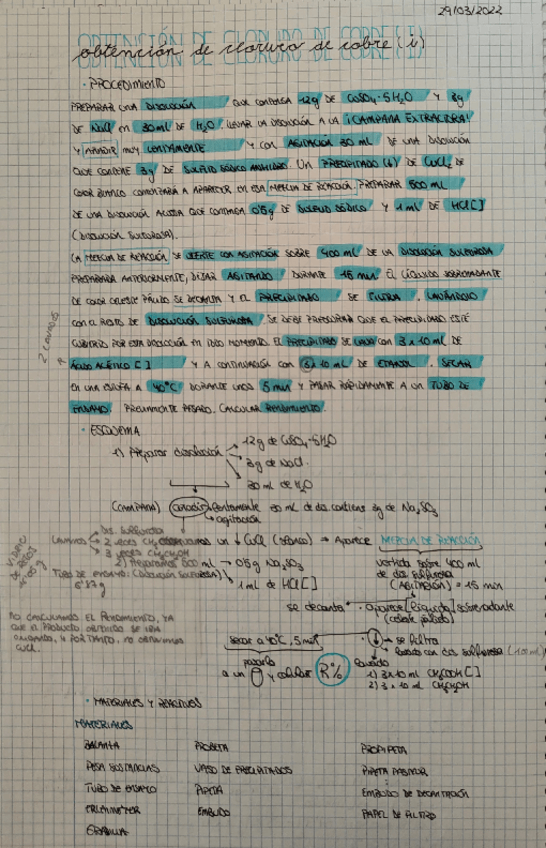 29/03/2022
OBTENCIÓN DE CLORURO DE COBRE (I)
obtención de cloruro de cobre (i)
· PROCEDIMIENTO
PREPARAR UNA DISOLUCIÓN QUE CONTENGA 12g DE CuSO4·5H2O Y 3g
DE NaCl EN 30ml DE H2O. LLEVAR LA DISOLUCIÓN A LA ¡CAMPANA EXTRACTORA!
Y AÑADIR MUY LENTAMENTE Y CON AGITACIÓN 30 ml DE UNA DISOLUCIÓN
QUE CONTIENE 3g DE SULFITO SÓDICO ANHIDRO. UN PRECIPITADO (s) DE CuCl2 DE
COLOR BLANCO COMENZARÁ A APARECER EN ESA MEZCLA DE REACCIÓN. PREPARAR 500 ml
DE UNA DISOLUCIÓN ACUOSA QUE CONTENGA 0'5g DE SULFITO SÓDICO Y 1 ml DE HCl [ ]
(DISOLUCIÓN SULFUROSA).
LA MEZCLA DE REACCIÓN SE VIERTE CON AGITACIÓN SOBRE 400 ml DE LA DISOLUCIÓN SULFUROSA
PREPARADA ANTERIORMENTE, DEJAR AGITANDO DURANTE 15 min. EL LÍQUIDO SOBRENADANTE
DE COLOR CELESTE PÁLIDO SE DECANTA Y EL PRECIPITADO SE FILTRA, LAVÁNDOLO
CON EL RESTO DE DISOLUCIÓN SULFUROSA. SE DEBE PROCURAR QUE EL PRECIPITADO ESTÉ
CUBIERTO POR ESTA DISOLUCIÓN EN TODO MOMENTO. EL PRECIPITADO SE LAVA CON 3 x 10 ml DE
ÁCIDO ACÉTICO [ ] Y A CONTINUACIÓN CON 3 x 10 ml DE ETANOL. SECAR
EN UNA ESTUFA A 40°C DURANTE UNOS 5 min Y PASAR RÁPIDAMENTE A UN TUBO DE
ENSAYO PREVIAMENTE PESADO. CALCULAR RENDIMIENTO.
2 LAVADOS
· ESQUEMA
1) Preparar disolución
12g de CuSO4·5H2O
3g de NaCl.
30 ml de H2O
(CAMPANA) añadir lentamente 30 ml de dis contiene 3g de Na2SO3
agitación
↓ CuCl (BLANCO) → Aparece MEZCLA DE REACCIÓN
LAVAMOS
Dis. sulfurosa
2 veces
3 veces CH3CH2OH
2) Preparamos 500 ml
(DISOLUCIÓN SULFUROSA)
0'5g Na2SO3
1 ml de HCl [ ]
TUBO DE ENSAYO:
VIDRIO DE RELOJ
vertida sobre 400 ml
de dis sulfurosa
(AGITACIÓN) = 15 min
se decanta · Aparece [líquido] sobrenadante
(celeste pálido)
↓ → se filtra
lavado con dis sulfurosa (100ml)
secar a 40°C, 5 min
pasarlo
a un y calcular R%
lavado
1) 3x10 ml CH3COOH [ ]
2) 3 x 10 ml CH3CH2OH
NO CALCULAMOS EL RENDIMIENTO, YA
QUE EL PRODUCTO OBTENIDO SE IBA
OXIDANDO, Y POR TANTO, NO OBTENÍAMOS
CuCl.
· MATERIALES Y REACTIVOS
MATERIALES
BALANZA PROBETA PROPIPETA
PESA SUSTANCIAS VASO DE PRECIPITADOS PIPETA PASTEUR
TUBO DE ENSAYO PIPETA EMBUDO DE DECANTACIÓN
ERLENMEYER EMBUDO PAPEL DE FILTRO
GRADILLA